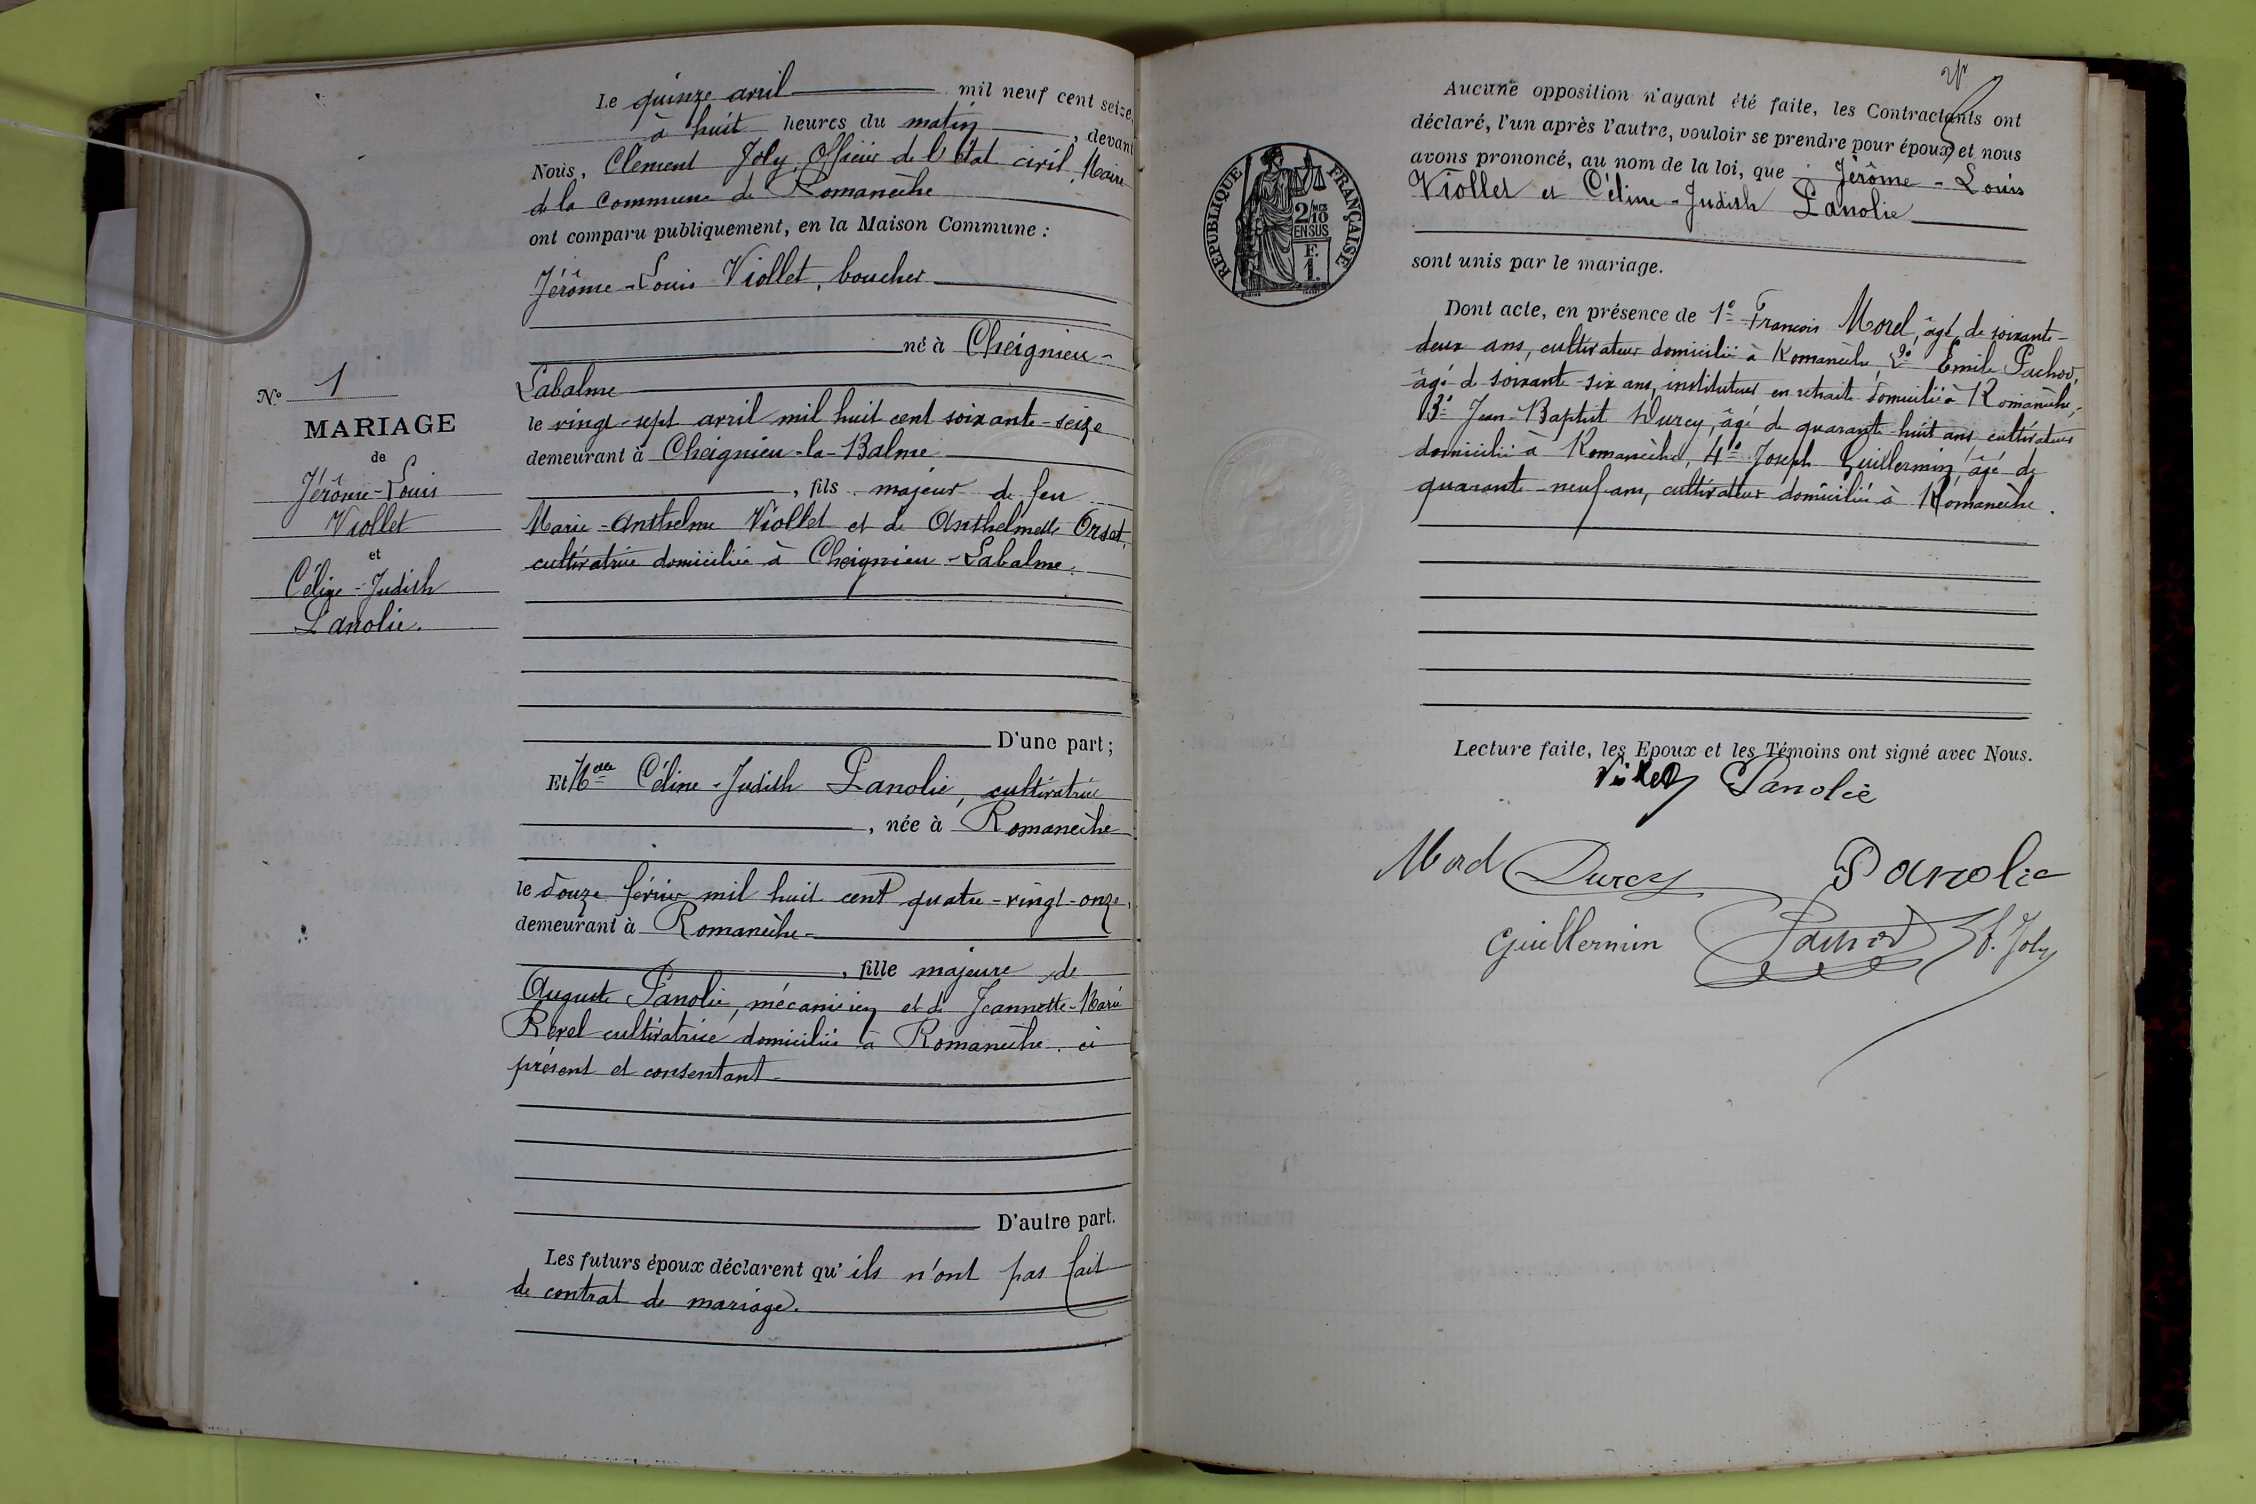 Le quinze avril mil neuf cent seize,
à huit heures du matin, devant
Nous, Clément Joly, Officier de l'état civil, Maire
de la Commune de Romanèche
ont comparu publiquement, en la Maison Commune :
Jérôme-Louis Viollet, boucher
né à Cheignieu-
Labalme
le vingt-sept avril mil huit cent soixante-seize
demeurant à Cheignieu-la-Balme
, fils majeur de feu
Marie-Anthelme Viollet et de Anthelmette Orset,
cultivatrice domiciliée à Cheignieu-Labalme.
D'une part;
Et Melle Céline-Judith Panolie, cultivatrice
, née à Romanèche
le douze février mil huit cent quatre-vingt-onze,
demeurant à Romanèche-
, fille majeure de
Auguste Panolie, mécanicien et de Jeannette-Marie
Revel cultivatrice domiciliés à Romanèche, ci
présent et consentant-
D'autre part.
Les futurs époux déclarent qu'ils n'ont pas fait
de contrat de mariage.
N.° 1
MARIAGE
de
Jérôme-Louis
Viollet
et
Céline-Judith
Panolie.
Aucune opposition n'ayant été faite, les Contractants ont
déclaré, l'un après l'autre, vouloir se prendre pour époux, et nous
avons prononcé, au nom de la loi, que Jérôme-Louis
Viollet et Céline-Judith Panolie
sont unis par le mariage.
Dont acte, en présence de 1° François Morel, âgé de soixante-
deux ans, cultivateur domicilié à Romanèche, 2° Emile Pachod,
âgé de soixante-six ans, instituteur en retraite domicilié à Romanèche,
3° Jean-Baptist Durcy, âgé de quarante-huit ans cultivateur
domicilié à Romanèche, 4° Joseph Guillermin, âgé de
quarante-neuf ans, cultivateur domicilié à Romanèche.
Lecture faite, les Epoux et les Témoins ont signé avec Nous.
Viollet C Panolie
Morel Durcy Panolie
Guillermin Pachod Joly
RÉPUBLIQUE FRANÇAISE
2/10 MES
EN SUS
F.
1.